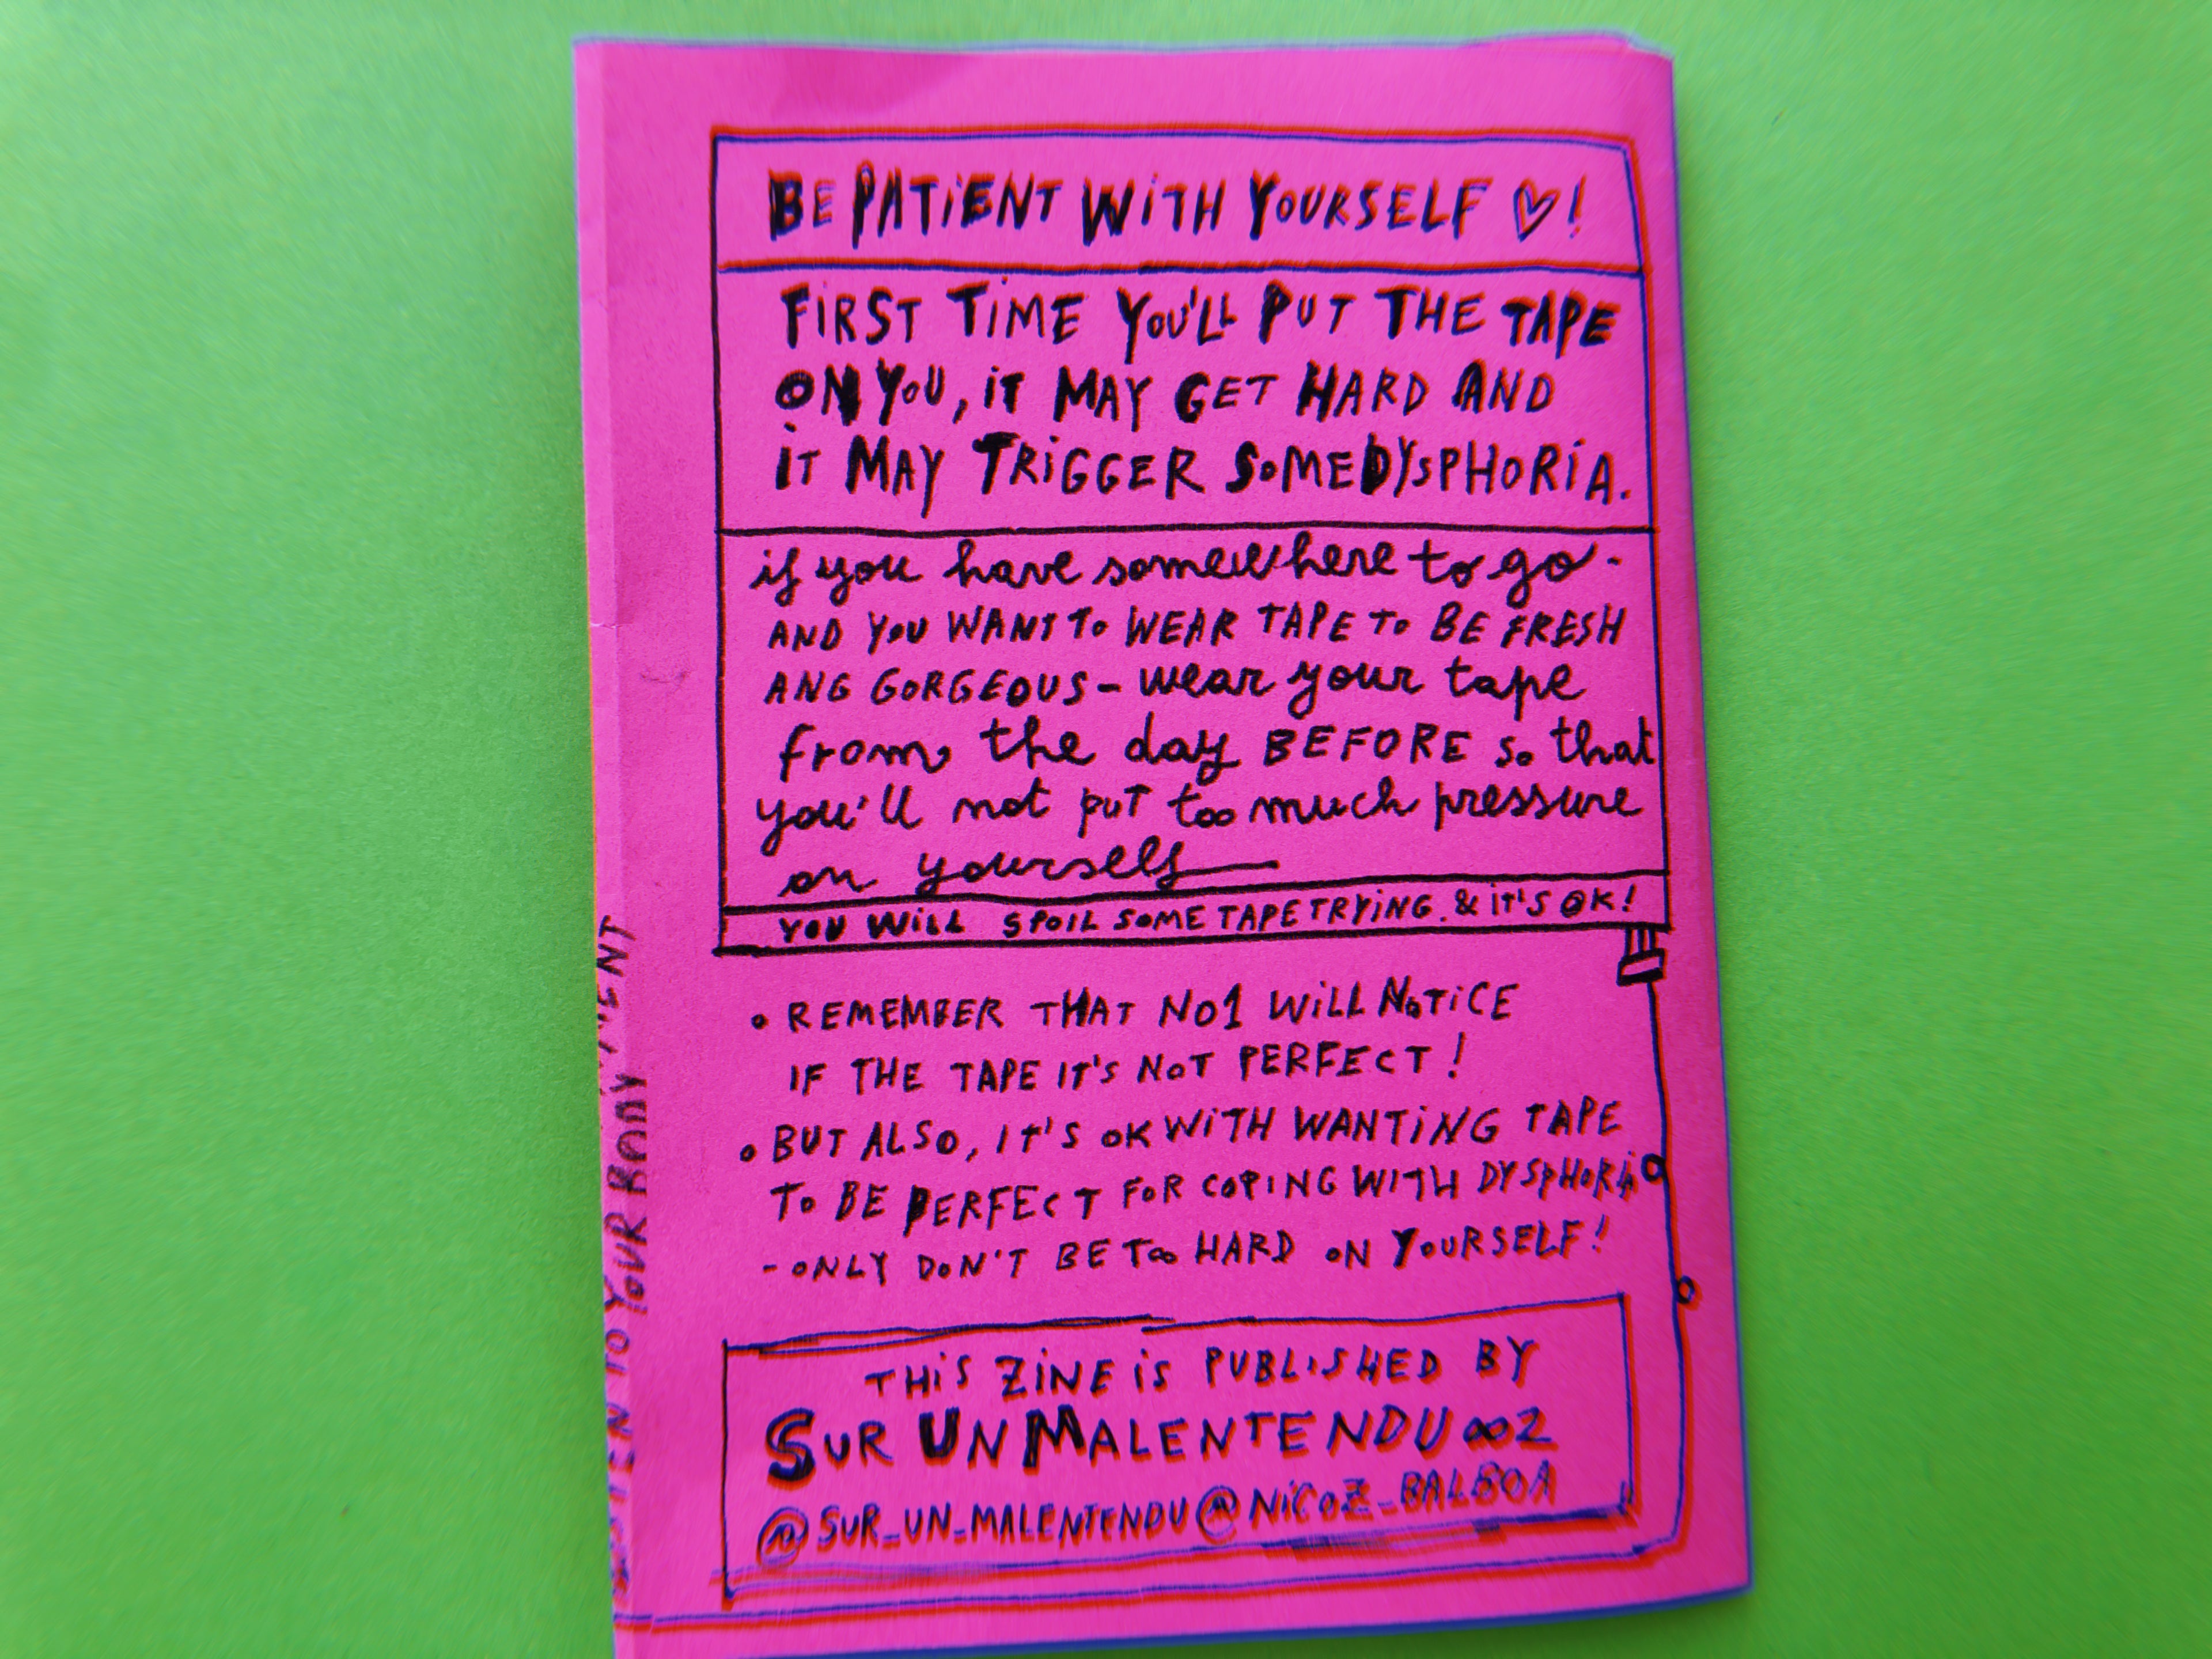 BE PATiENT WiTH YOURSELF ♡!
FiRST TiME YOU'LL PUT THE TAPE
ON YOU, iT MAY GET HARD AND
iT MAY TRiGGER SOME DYSPHORiA.
if you have somewhere to go -
AND YOU WANT TO WEAR TAPE TO BE FRESH
ANG GORGEOUS - wear your tape
from the day BEFORE so that
you'll not put too much pressure
on yourself
YOU WiLL SPOIL SOME TAPE TRYiNG. & iT'S OK!
• REMEMBER THAT NO1 WiLL NOTiCE
IF THE TAPE IT'S NOT PERFECT!
• BUT ALSO, IT'S OK WiTH WANTiNG TAPE
TO BE PERFECT FOR COPING WITH DYSPHORiA
- ONLY DON'T BE TOO HARD ON YOURSELF!
THiS ZiNE iS PUBLiSHED BY
SUR UN MALENTENDU ∞2
@SUR_UN_MALENTENDU @NiCOZ_BALBOA
LISTEN TO YOUR BODY